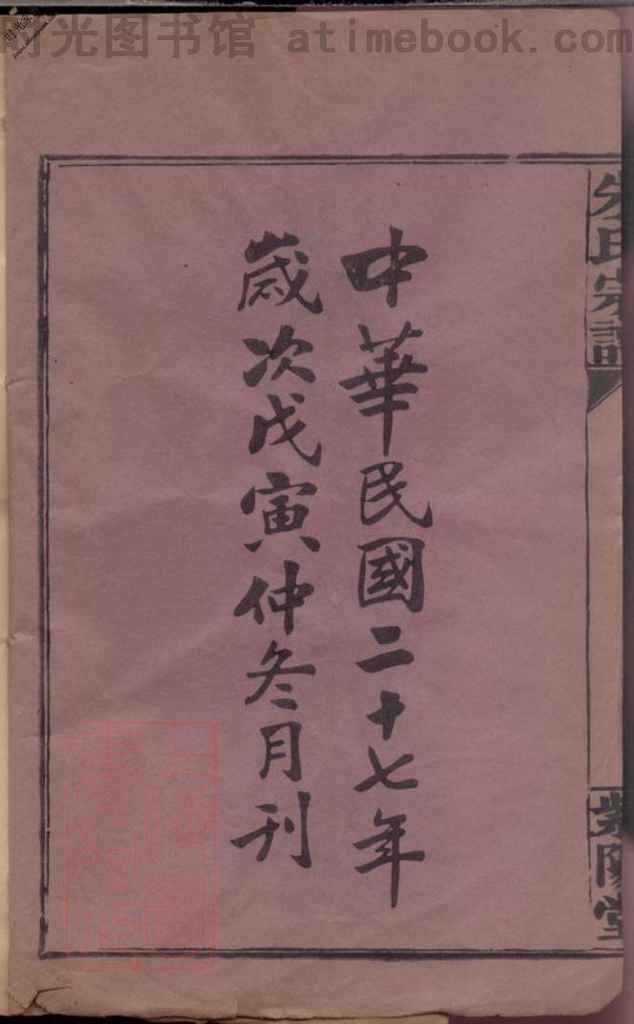 时光图书馆 atimebook.com
朱氏宗譜
紫陽堂
中華民國二十七年
歲次戊寅仲冬月刊